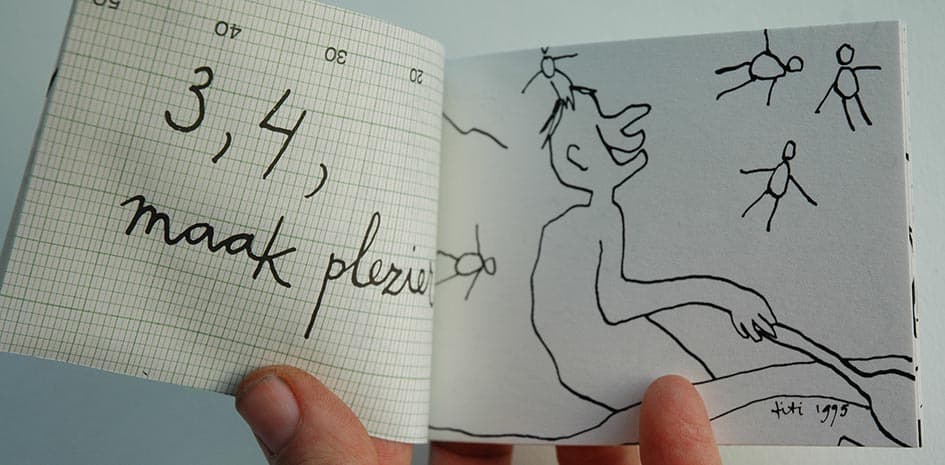 50 40 30 20
3, 4,
maak plezier
titi 1995